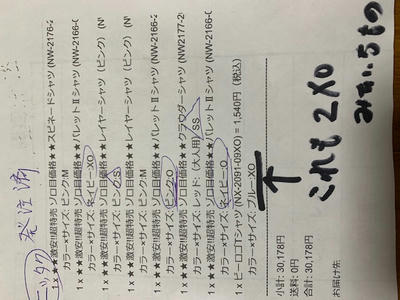 ニッタク 発注済
1 x ★★激安!!超特売 ゾロ目価格★★スピネードシャツ (NW-2176-2
カラー×サイズ: ピンク:M
1 x ★★激安!!超特売 ゾロ目価格★★パレットⅡシャツ (NW-2166-0
カラー×サイズ: ネイビー:XO
1 x ★★激安!!超特売 ゾロ目価格★★レイヤーシャツ(ピンク) (N
カラー×サイズ: ピンク:S
1 x ★★激安!!超特売 ゾロ目価格★★レイヤーシャツ(ピンク) (N
カラー×サイズ: ピンク:M
1 x ★★激安!!超特売 ゾロ目価格★★パレットⅡシャツ (NW-2166-2
カラー×サイズ: ピンク:O
1 x ★★激安!!超特売 ゾロ目価格★★クラウダーシャツ (NW2177-2
カラー×サイズ: レッド:(大人用) SS
1 x ★★激安!!超特売 ゾロ目価格★★パレットⅡシャツ (NW-2166-0
カラー×サイズ: ネイビー:O
1 x ビーロゴTシャツ (NX-2091-09XO) = 1,540円 (税込)
カラー×サイズ: ブルー:XO
小計: 30,178円
送料: 0円
合計: 30,178円
お届け先
これも 2XO
みたいなもの